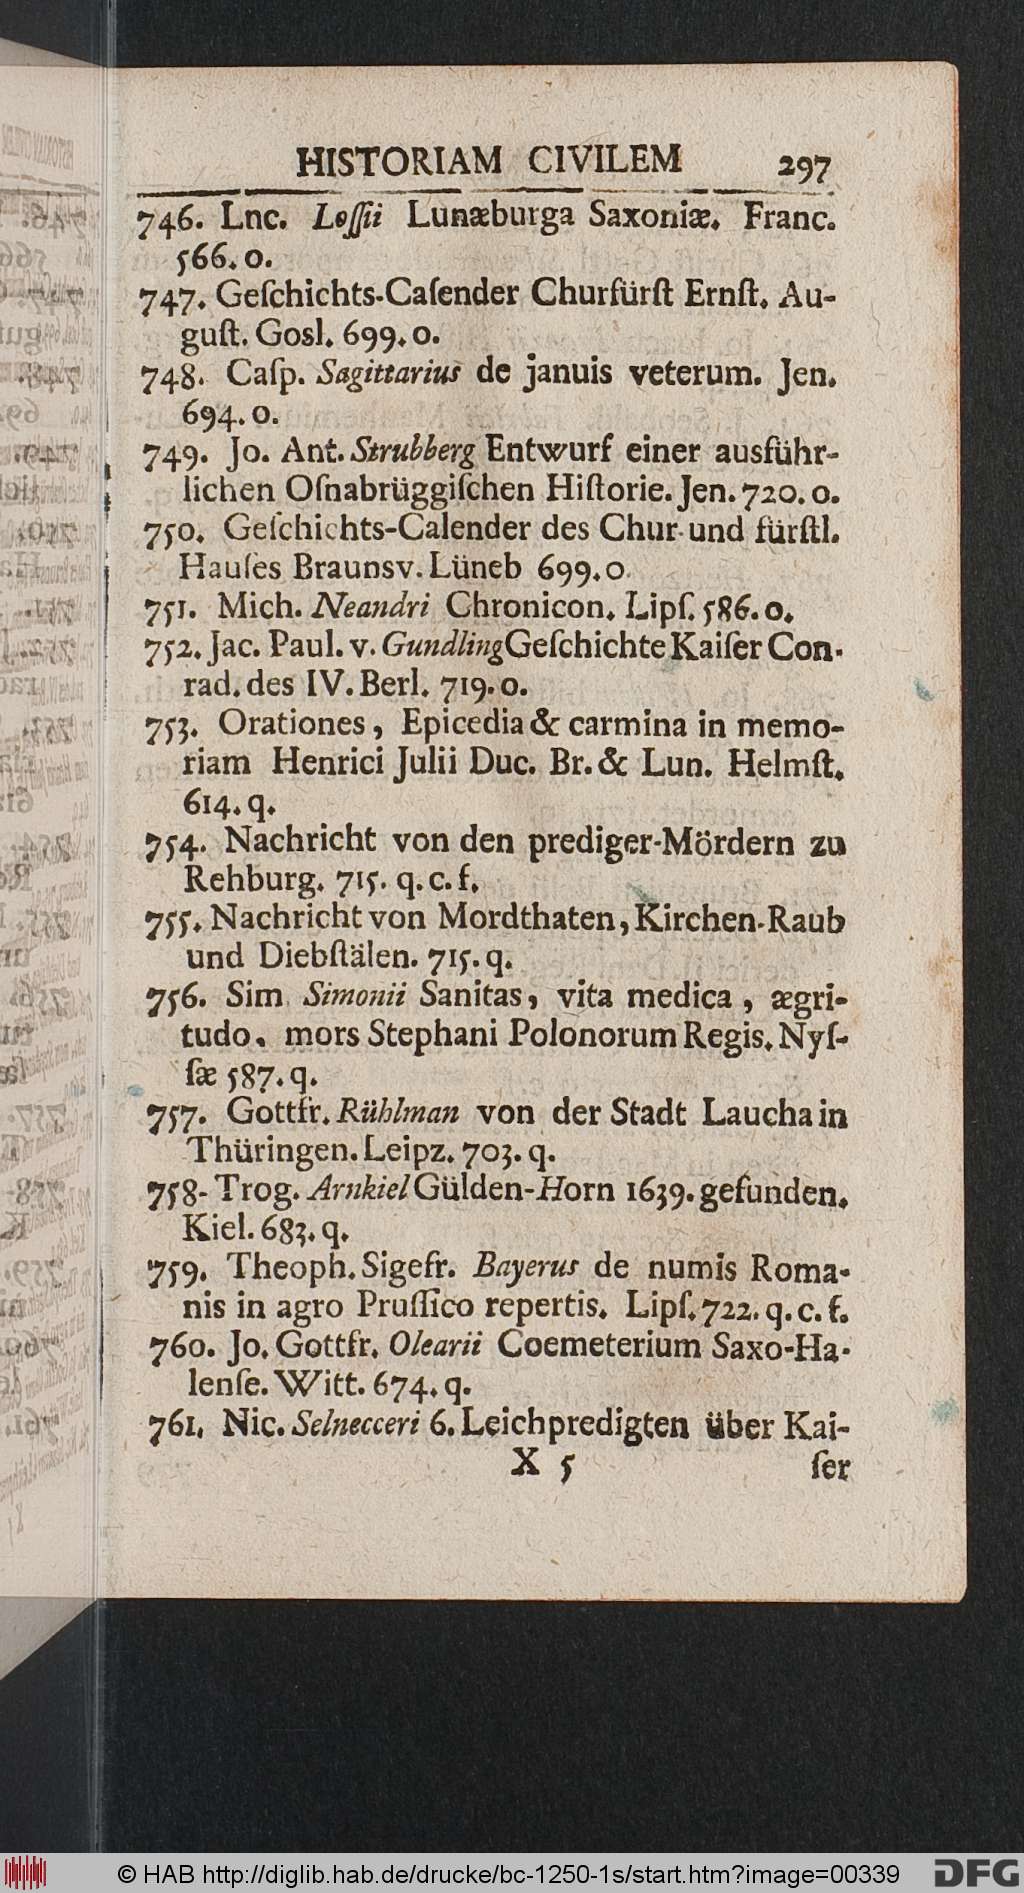 HISTORIAM CIVILEM 297
746. Lnc. Loſſii Lunæburga Saxoniæ. Franc.
566. o.
747. Geſchichts-Caſender Churfürſt Ernſt. Au-
guſt. Goſl. 699. o.
748. Caſp. Sagittarius de januis veterum. Jen.
694. o.
749. Jo. Ant. Strubberg Entwurf einer ausführ-
lichen Oſnabrüggiſchen Hiſtorie. Jen. 720. o.
750. Geſchichts-Calender des Chur- und fürſtl.
Hauſes Braunsv. Lüneb 699. o.
751. Mich. Neandri Chronicon. Lipſ. 586. o.
752. Jac. Paul. v. Gundling Geſchichte Kaiſer Con-
rad. des IV. Berl. 719. o.
753. Orationes, Epicedia & carmina in memo-
riam Henrici Julii Duc. Br. & Lun. Helmſt.
614. q.
754. Nachricht von den prediger-Mördern zu
Rehburg. 715. q. c. f.
755. Nachricht von Mordthaten, Kirchen-Raub
und Diebſtälen. 715. q.
756. Sim. Simonii Sanitas, vita medica, ægri-
tudo. mors Stephani Polonorum Regis. Nyſ-
ſæ 587. q.
757. Gottfr. Rühlman von der Stadt Laucha in
Thüringen. Leipz. 703. q.
758- Trog. Arnkiel Gülden-Horn 1639. gefunden.
Kiel. 683. q.
759. Theoph. Sigefr. Bayerus de numis Roma-
nis in agro Pruſſico repertis. Lipſ. 722. q. c. f.
760. Jo. Gottfr. Olearii Coemeterium Saxo-Ha-
lenſe. Witt. 674. q.
761. Nic. Selnecceri 6. Leichpredigten über Kai-
X 5 ſer
© HAB http://diglib.hab.de/drucke/bc-1250-1s/start.htm?image=00339 DFG